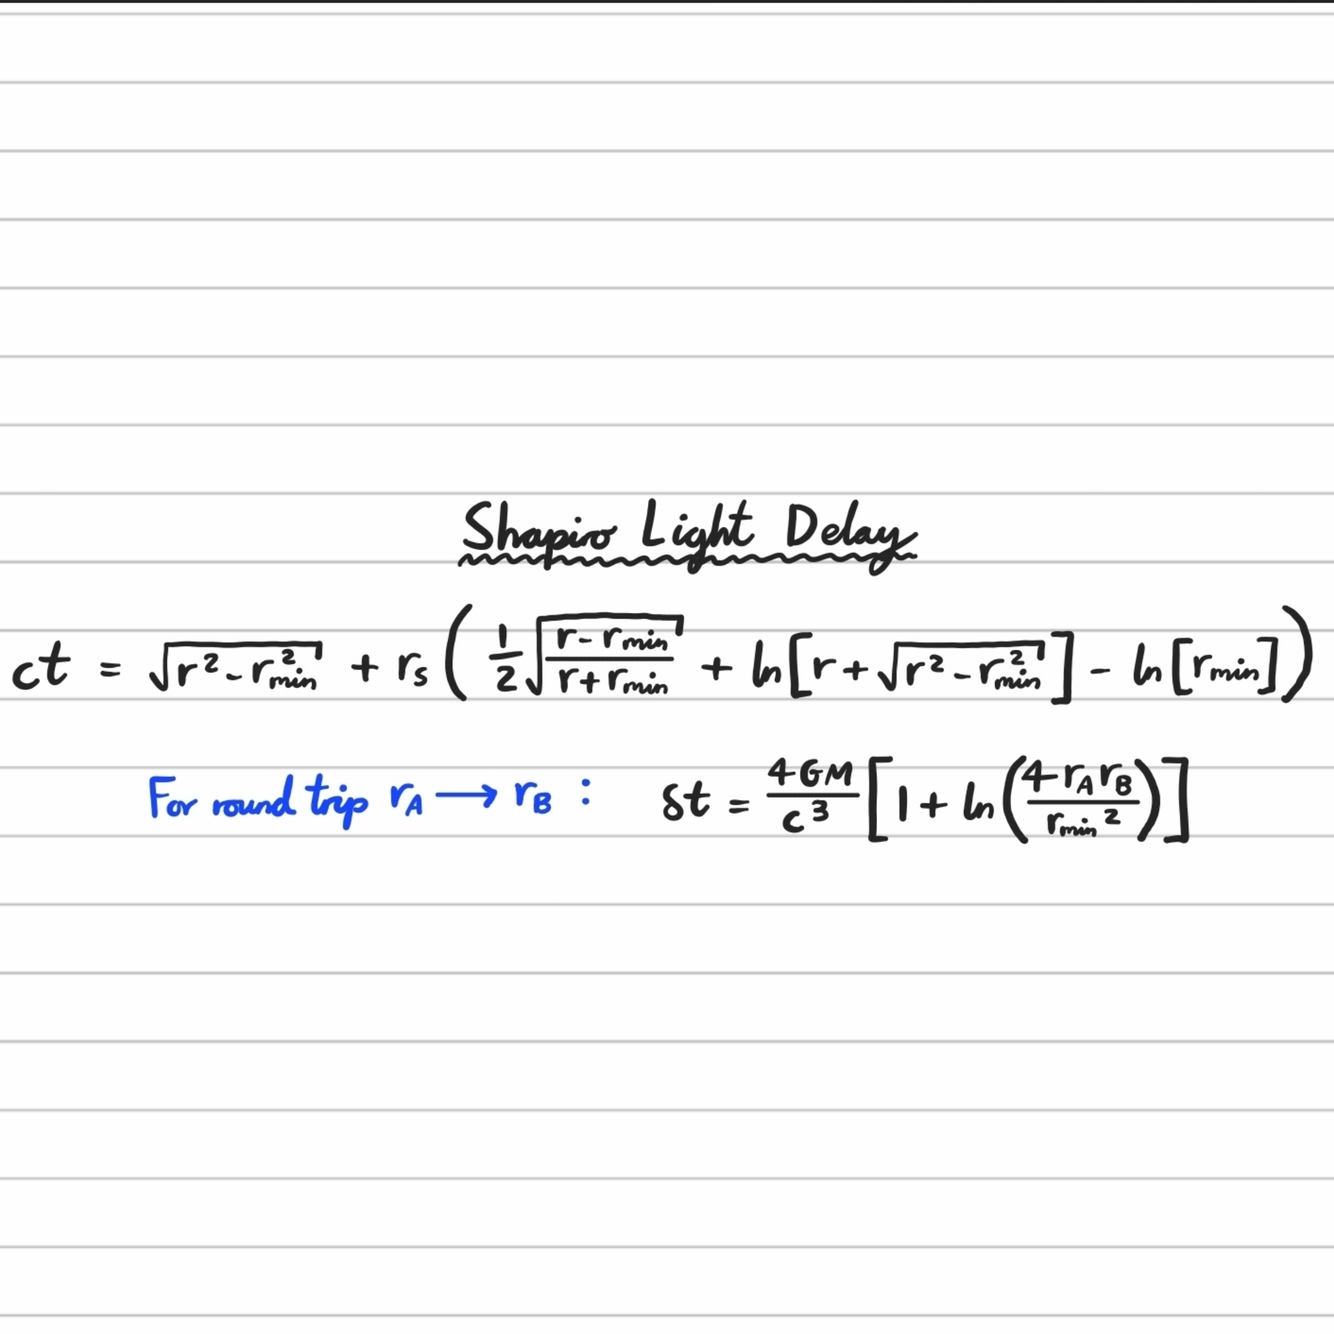 Shapiro Light Delay
ct = √(r² - r_min²) + r_s ( 1/2 √((r - r_min)/(r + r_min)) + ln[r + √(r² - r_min²)] - ln[r_min] )
For round trip r_A → r_B : δt = 4GM/c³ [1 + ln(4 r_A r_B / r_min²)]